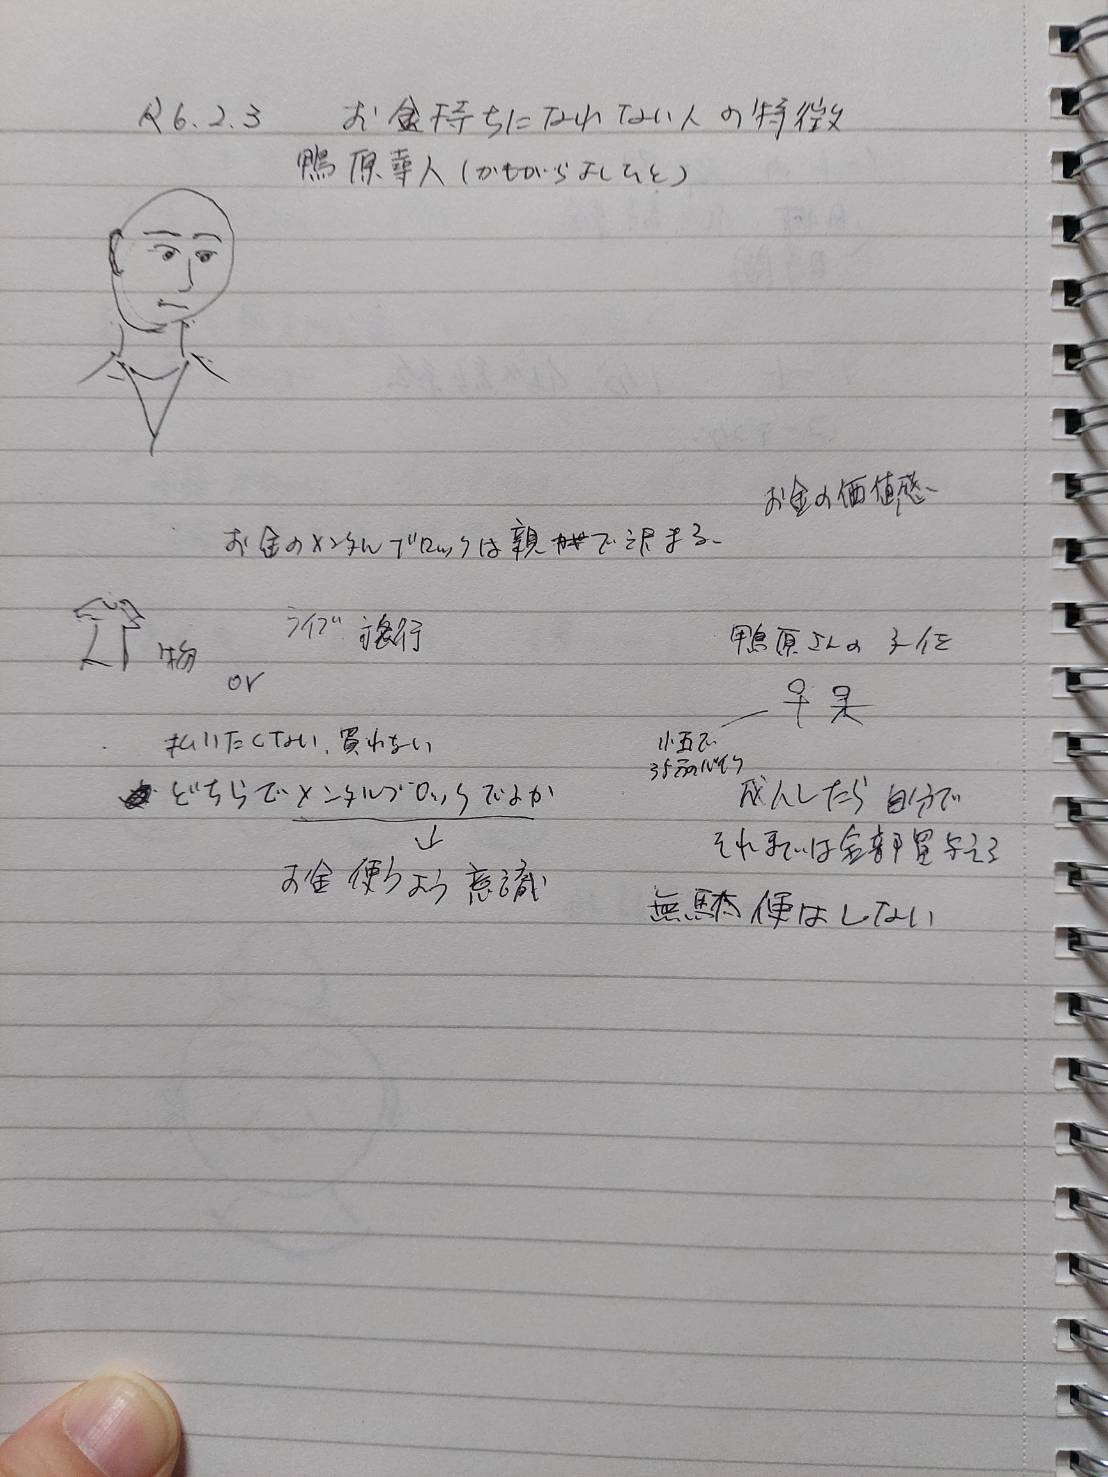 R6.2.3 お金持ちになれない人の特徴
鴨原幸人(かもがらよしひと)
お金の価値感
お金のメンタルブロックは親で決まる。
物 or ライブ 旅行
払いたくない、買わない
どちらでメンタルブロックでよか
↓
お金使うよう意識
鴨原さんの子 女 男
小五で
35万のバイク
成人したら自分で
それまでは全部買与える
無駄使はしない